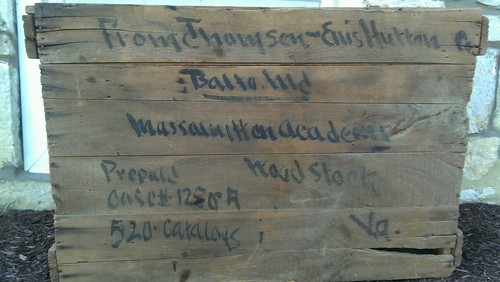 From Thomsen-Ellis Hutton Co
Balto. Md
Massanutten Academy
Prepaid Woodstock
Case # 1250 A
520 Catalogs Va.